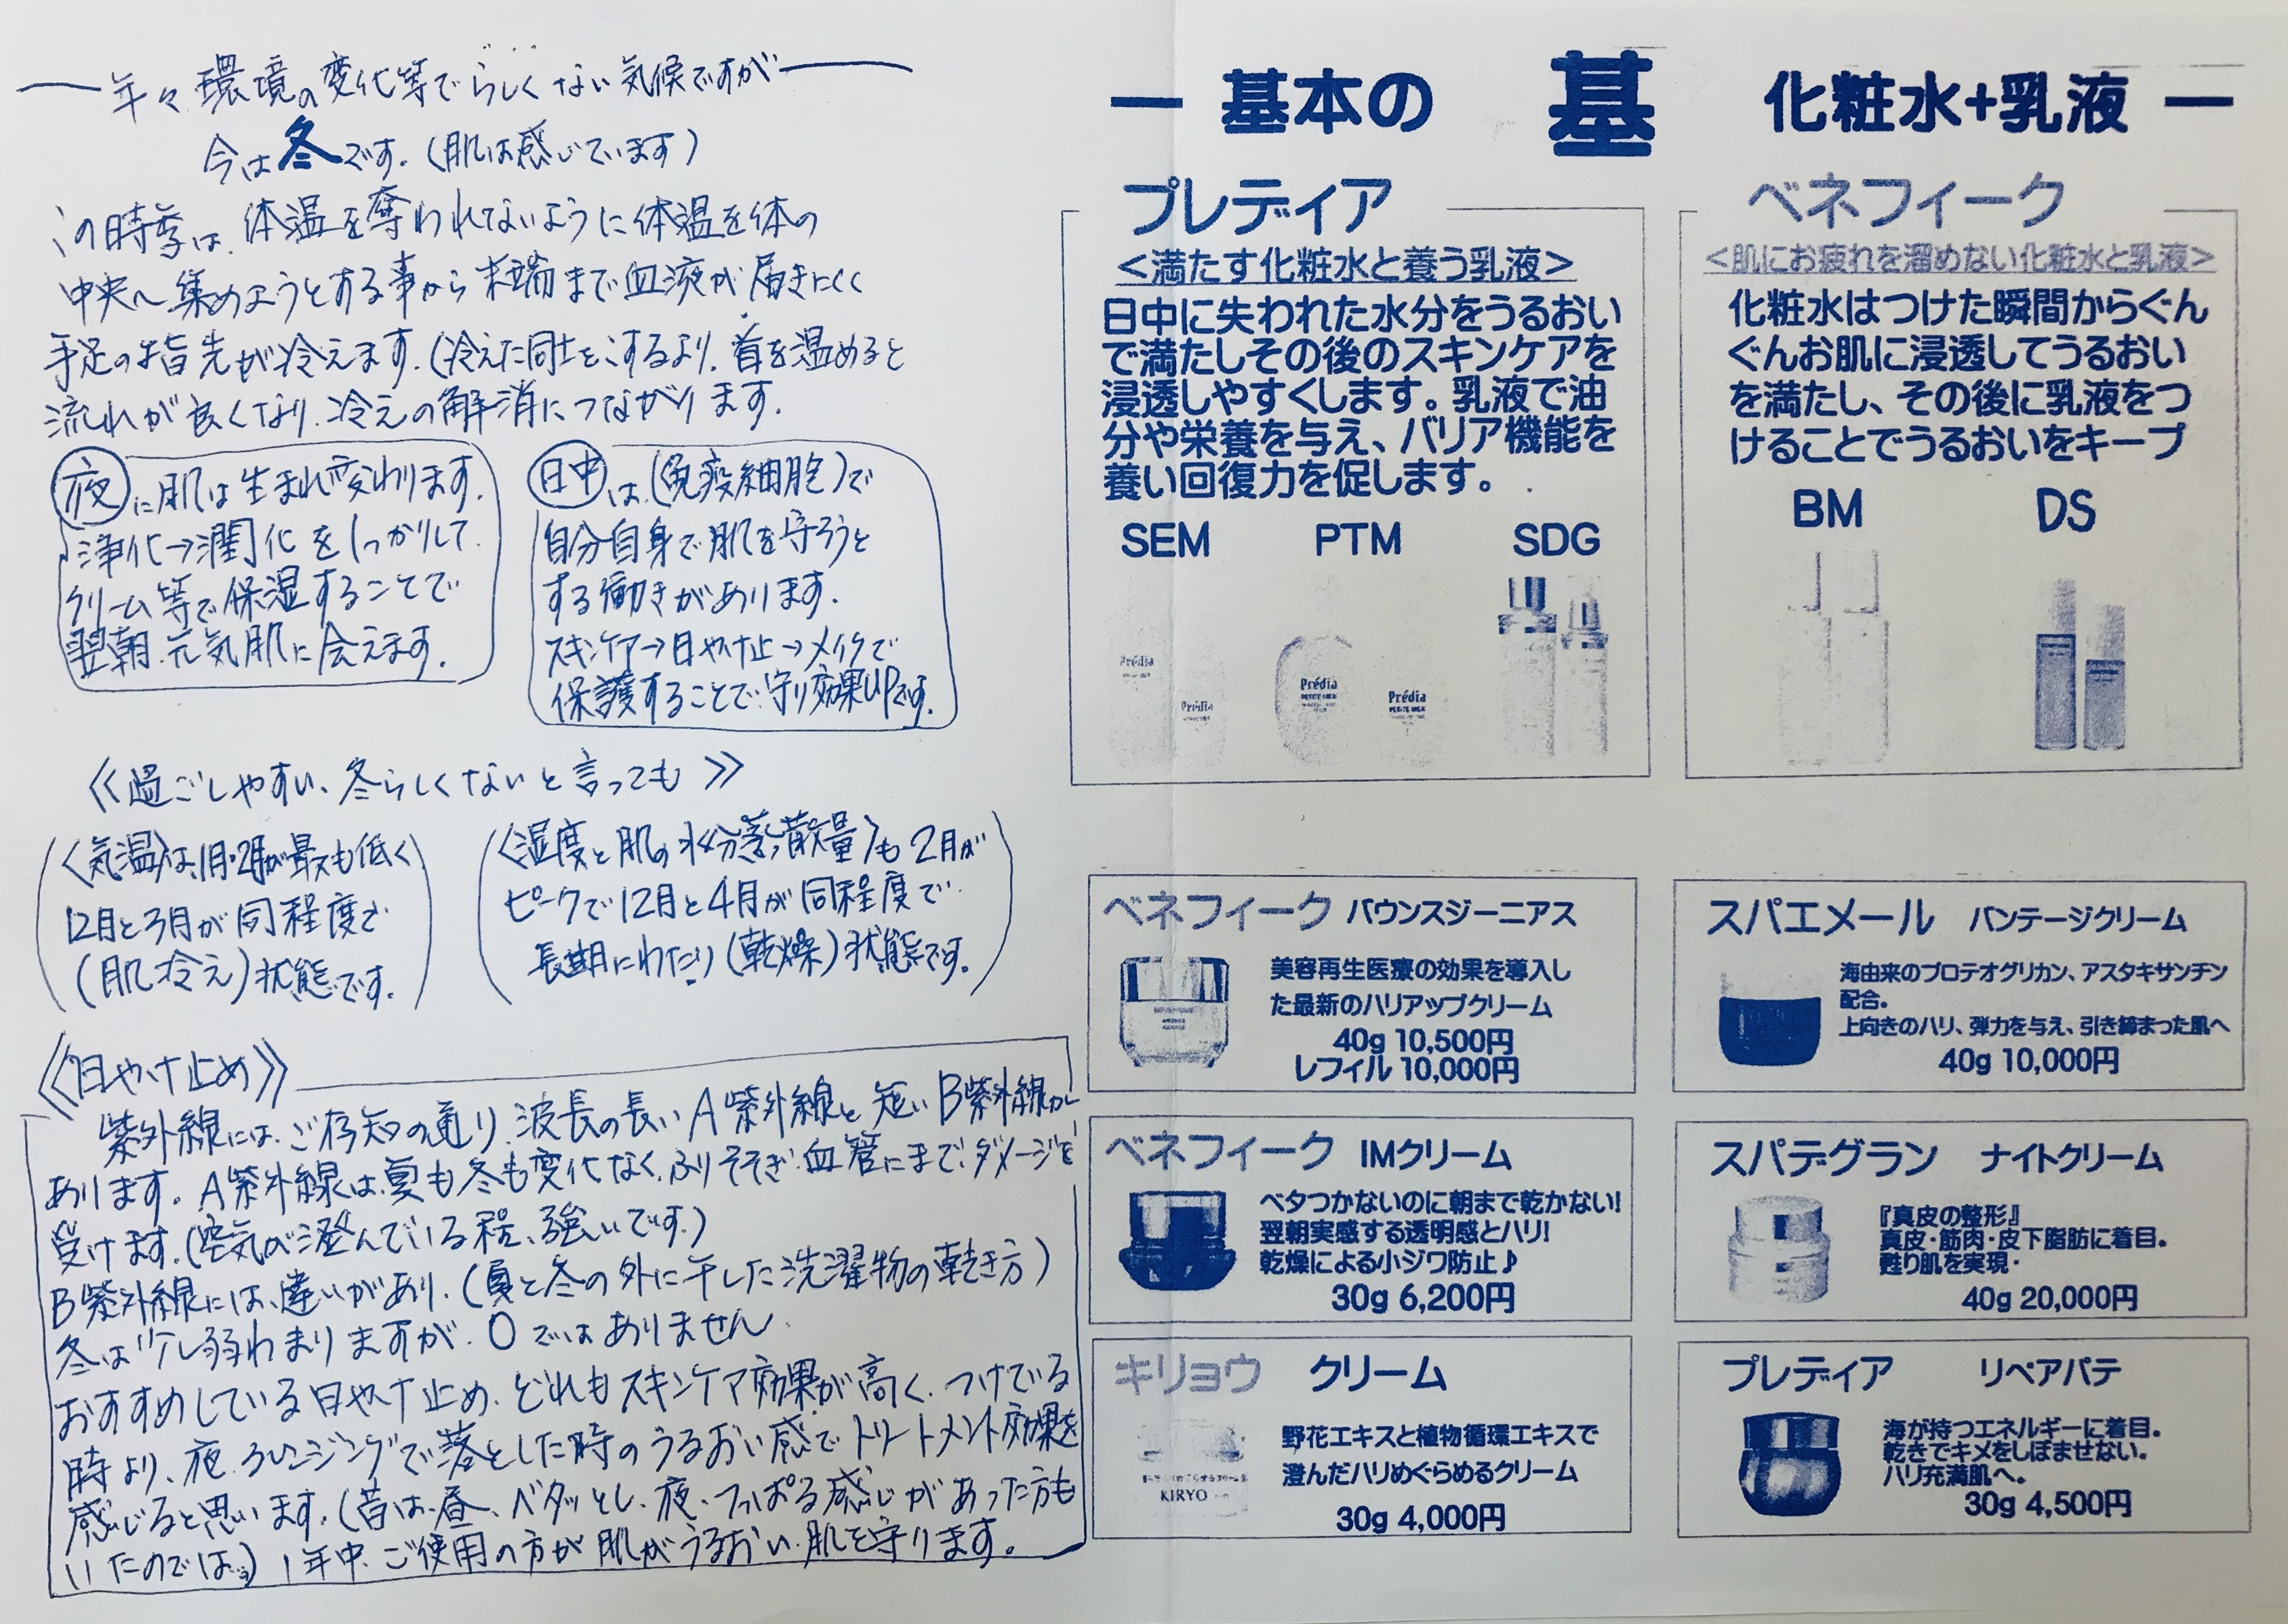 年々環境の変化等でらしくない気候ですが
今は冬です.(肌は感じています)
この時季は、体温を奪われてないように体温を体の
中央へ集めようとする事から末端まで血液が届きにくく
手足の指先が冷えます.(冷えた同士をこするより、首を温めると
流れが良くなり、冷えの解消につながります.
夜に肌は生まれ変わります.
浄化→潤化をしっかりして.
クリーム等で保湿することで
翌朝、元気肌に会えます.
日中は、(免疫細胞)で
自分自身で肌を守ろうと
する働きがあります.
スキンケア→日やけ止→メイクで
保護することで、守り効果UPです.
《過ごしやすい、冬らしくないと言っても》
〈気温〉は、1月・2月が最も低く
12月と3月が同程度で
(肌冷え)状態です.
〈湿度と肌の水分蒸散量〉も2月が
ピークで12月と4月が同程度で
長期にわたり(乾燥)状態です.
《日やけ止め》
紫外線には、ご存知の通り、波長の長いA紫外線と短いB紫外線が
あります。A紫外線は、夏も冬も変化なく、ふりそそぎ、血管にまで、ダメージを
受けます.(空気が澄んでいる程、強いです.)
B紫外線には、違いがあり、(夏と冬の外に干した洗濯物の乾き方)
冬は少し弱わまりますが、0ではありません
おすすめしている日やけ止め、どれもスキンケア効果が高く、つけている
時より、夜、クレンジングで落とした時のうるおい感でトリートメント効果を
感じると思います.(昔は、昼、ベタッとし、夜、つっぱる感じがあった方も
いたのでは) 1年中、ご使用の方が肌がうるおい、肌を守ります。
ー 基本の 基 化粧水+乳液 ー
プレディア
<満たす化粧水と養う乳液>
日中に失われた水分をうるおい
で満たしその後のスキンケアを
浸透しやすくします。乳液で油
分や栄養を与え、バリア機能を
養い回復力を促します。
SEM PTM SDG
Prédia
Prédia
Prédia
PETITE MILK
Prédia
PETITE MILK
ベネフィーク
<肌にお疲れを溜めない化粧水と乳液>
化粧水はつけた瞬間からぐん
ぐんお肌に浸透してうるおい
を満たし、その後に乳液をつ
けることでうるおいをキープ
BM DS
ベネフィーク バウンスジーニアス
美容再生医療の効果を導入し
た最新のハリアップクリーム
40g 10,500円
レフィル 10,000円
スパエメール バンテージクリーム
海由来のプロテオグリカン、アスタキサンチン
配合。
上向きのハリ、弾力を与え、引き締まった肌へ
40g 10,000円
ベネフィーク IMクリーム
ベタつかないのに朝まで乾かない!
翌朝実感する透明感とハリ!
乾燥による小ジワ防止♪
30g 6,200円
スパデグラン ナイトクリーム
『真皮の整形』
真皮・筋肉・皮下脂肪に着目。
甦り肌を実現・
40g 20,000円
キリョウ クリーム
野花エキスと植物循環エキスで
澄んだハリめぐらめるクリーム
30g 4,000円
KIRYO
プレディア リペアパテ
海が持つエネルギーに着目。
乾きでキメをしぼませない。
ハリ充満肌へ。
30g 4,500円